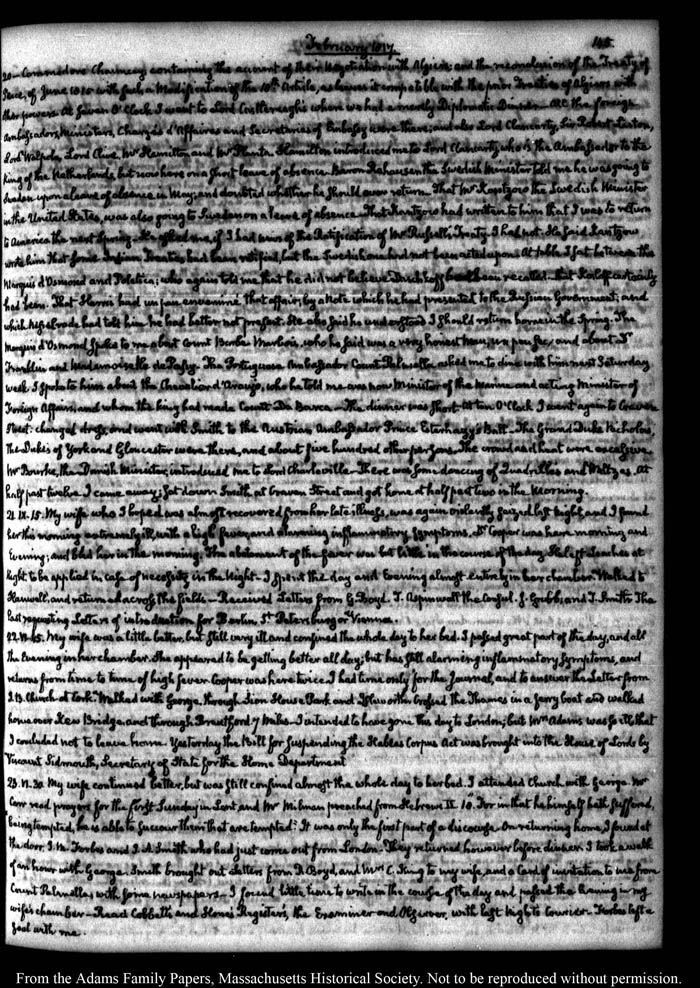 February 1817. 145.
20— Commodore Chauncey containing the account of their Negotiation with Algiers: and the reconclusion of the Treaty of
Peace, of June 1815 with such a Modification of the 18th. Article, as leaves it compatible with the prior Treaties of Algiers with
other powers. At Seven O'Clock I went to Lord Castlereagh's where we had a merely Diplomatic Dinner. All the foreign
Ambassadors, Ministers, Chargés d'Affaires and Secretaries of Embassy were there; and also Lord Clancarty, Sir Robert Liston,
Lord Walpole, Lord Clive, Mr Hamilton and Mr Planta. Hamilton introduced me to Lord Clancarty who is the Ambassador to the
King of the Netherlands, but now here on a short leave of absence. Baron Rehausen the Swedish Minister told me he was going to
Sweden upon a leave of absence in May; and doubted whether he should ever return. That Mr Kantzow the Swedish Minister
in the United States, was also going to Sweden on a leave of absence. That Kantzow had written to him that I was to return
to America the next Spring. He asked me, if I had news of the Ratification of Mr Russell's Treaty. I had not. He said Kantzow
wrote him that some Indian Treaties had been ratified, but the Swedish one had not been acted upon. At table I sat between the
Marquis d'Osmond and Poletica; who again told me that he did not believe Daschkoff had been recalled. But Kosloff certainly
had been. That Harris had un peu envenimé that affair, by a Note which he had presented to the Russian Government; and
which Nesselrode had told him he had better not present. He also said he understood I should return home in the Spring. The
Marquis d'Osmond spoke to me about Count Barbé Marbois, who he said was a very honest man, and about Dr
Franklin and Mademoiselle de Passy. The Portuguese Ambassador Count Palmella asked me to dine with him next Saturday
week. I spoke to him about the Chevalier d'Araujo, who he told me was now Minister of the Marine and acting Minister of
Foreign Affairs; and whom the king had made Count Da Barca. The dinner was short. At ten O'Clock I went again to Craven
Street: changed dress, and went with Smith to the Austrian Ambassador Prince Esterhazy's Ball. The Grand Duke Nicholas,
The Dukes of York and Gloucester were there, and about five hundred other persons. The crowd and heat were excessive.
Mr Bourke, the Danish Minister, introduced me to Lord Charleville. There was some dancing of Quadrilles and Waltzes. At
half past twelve I came away; set down Smith at Craven Street and got home at half past two in the Morning.
21. IX. 15. My wife who I hoped was almost recovered from her late illness, was again violently seized last Night, and I found
her this morning extremely ill, with a high fever, and alarming inflammatory symptoms. Dr Cooper was here morning and
Evening; and bled her in the morning. The abatement of the fever was but little in the course of the day. He left Leaches at
Night to be applied in case of necessity in the Night. I spent the day and Evening almost entirely in her chamber. Walked to
Hanwell, and returned across the fields. Received Letters from G. Boyd. T. Aspinwall the Consul. J. Grubb; and J. Smith. The
last requesting Letters of introduction for Berlin, St. Petersburg or Vienna.
22. My wife was a little better, but still very ill and confined the whole day to her bed. I passed great part of the day, and all
the Evening in her chamber. She appeared to be getting better all day; but has still alarming inflammatory symptoms, and
returns from time to time of high fever. Cooper was here twice. I had time only for the Journal, and to answer the Letter from
J. B. Church at Cork. Walked with George, through Sion House Park and Isleworth. Crossed the Thames in a ferry boat and walked
home over Kew Bridge and through Brentford 7 Miles. I intended to have gone this day to London; but Mrs. Adams was so ill that
I concluded not to leave home. Yesterday the Bill for suspending the Habeas Corpus Act was brought into the House of Lords by
Viscount Sidmouth, Secretary of State for the Home Department.
23. My wife continued better, but was still confined almost the whole day to her bed. I attended Church with George. Mr
Carr read prayers for the first Sunday in Lent and Mr Milman preached from Hebrews II. 18. For in that he himself hath suffered,
being tempted, he is able to succour them that are tempted. It was only the first part of a discourse. On returning home, I found at
the door J. M. Forbes and J. A. Smith who had just come out from London. They returned however before dinner. I took a walk
of an hour with George. Smith brought out Letters from R. Boyd, and Mrs C. King to my wife, and a Card of invitation to me from
Count Palmella, with some newspapers. I found little time to write in the course of the day and passed the Evening in my
wife's chamber. Read Cobbett's and Hone's Registers, the Examiner and Observer, with last Night's Courier. Forbes left a
seal with me.
From the Adams Family Papers, Massachusetts Historical Society. Not to be reproduced without permission.